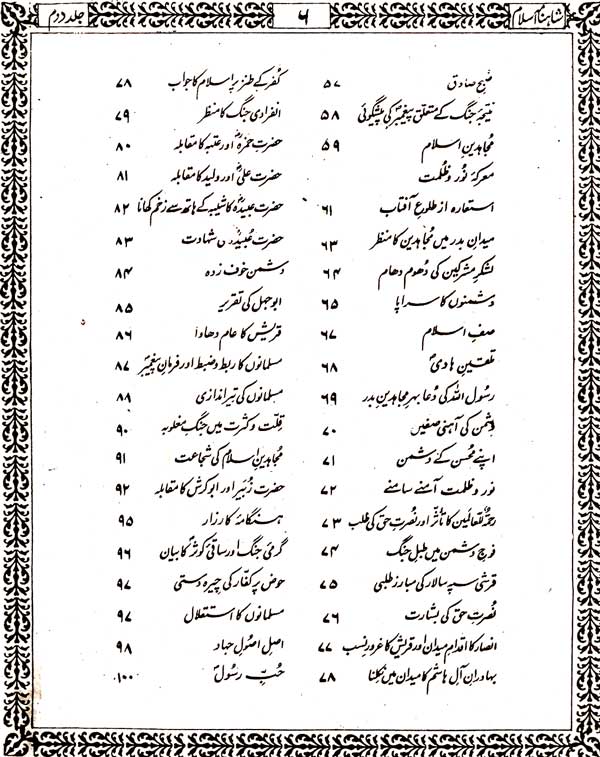 شاہنامہ اسلام
۶
جلد دوم
صبح صادق ۵۷
نتیجۂ جنگ کے متعلق پیغمبرؐ کی پیشگوئی ۵۸
مجاہدینِ اسلام ۵۹
معرکۂ نور و ظلمت
استعارہ از طلوعِ آفتاب ۶۱
میدانِ بدر میں مجاہدین کا منظر ۶۳
لشکرِ مشرکین کی دھوم دھام ۶۴
دشمنوں کا سراپا ۶۵
صفِ اسلام ۶۷
تلقینِ ہادیؐ ۶۸
رسول اللہ کی دُعا بہرِ مجاہدینِ بدر ۶۹
دشمن کی آہنی صفیں ۷۰
اپنے محسن کے دشمن ۷۱
نور و ظلمت آمنے سامنے ۷۲
رحمۃ للعالمین کا تأثر اور نُصرتِ حق کی طلب ۷۳
فوجِ دشمن میں طبلِ جنگ ۷۴
قرشی سپہ سالار کی مبارز طلبی ۷۵
نُصرتِ حق کی بشارت ۷۶
انصار کا اقدامِ میدان اور قریش کا غرورِ نسب ۷۷
بہادرانِ آلِ ہاشم کا میدان میں نکلنا ۷۸
کفر کے طنز پر اسلام کا جواب ۷۸
انفرادی جنگ کا منظر ۷۹
حضرت حمزہؓ اور عتبہ کا مقابلہ ۸۰
حضرت علیؓ اور ولید کا مقابلہ ۸۱
حضرت عبیدہؓ کا شیبہ کے ہاتھ سے زخم کھانا ۸۲
حضرت عبیدہؓ کی شہادت ۸۳
دشمن خوف زدہ ۸۴
ابوجہل کی تقریر ۸۵
قریش کا عام دھاوا ۸۶
مسلمانوں کا ربط و ضبط اور فرمانِ پیغمبرؐ ۸۷
مسلمانوں کی تیر اندازی ۸۸
قلت و کثرت میں جنگِ مغلوبہ ۹۰
مجاہدینِ اسلام کی شجاعت ۹۱
حضرت زُبیرؓ اور ابوکرش کا مقابلہ ۹۲
ہنگامۂ کارزار ۹۵
گرمئ جنگ اور ساقیٔ کوثرؐ کا بیان ۹۶
حوض پر کفار کی چیرہ دستی ۹۷
مسلمانوں کا استقلال ۹۷
اصل اصُولِ جہاد ۹۸
حُبِّ رسولؐ ۱۰۰